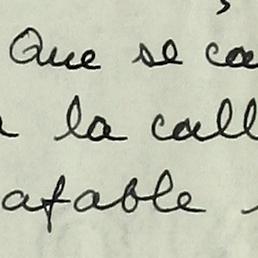 Que se ca
la call
afable